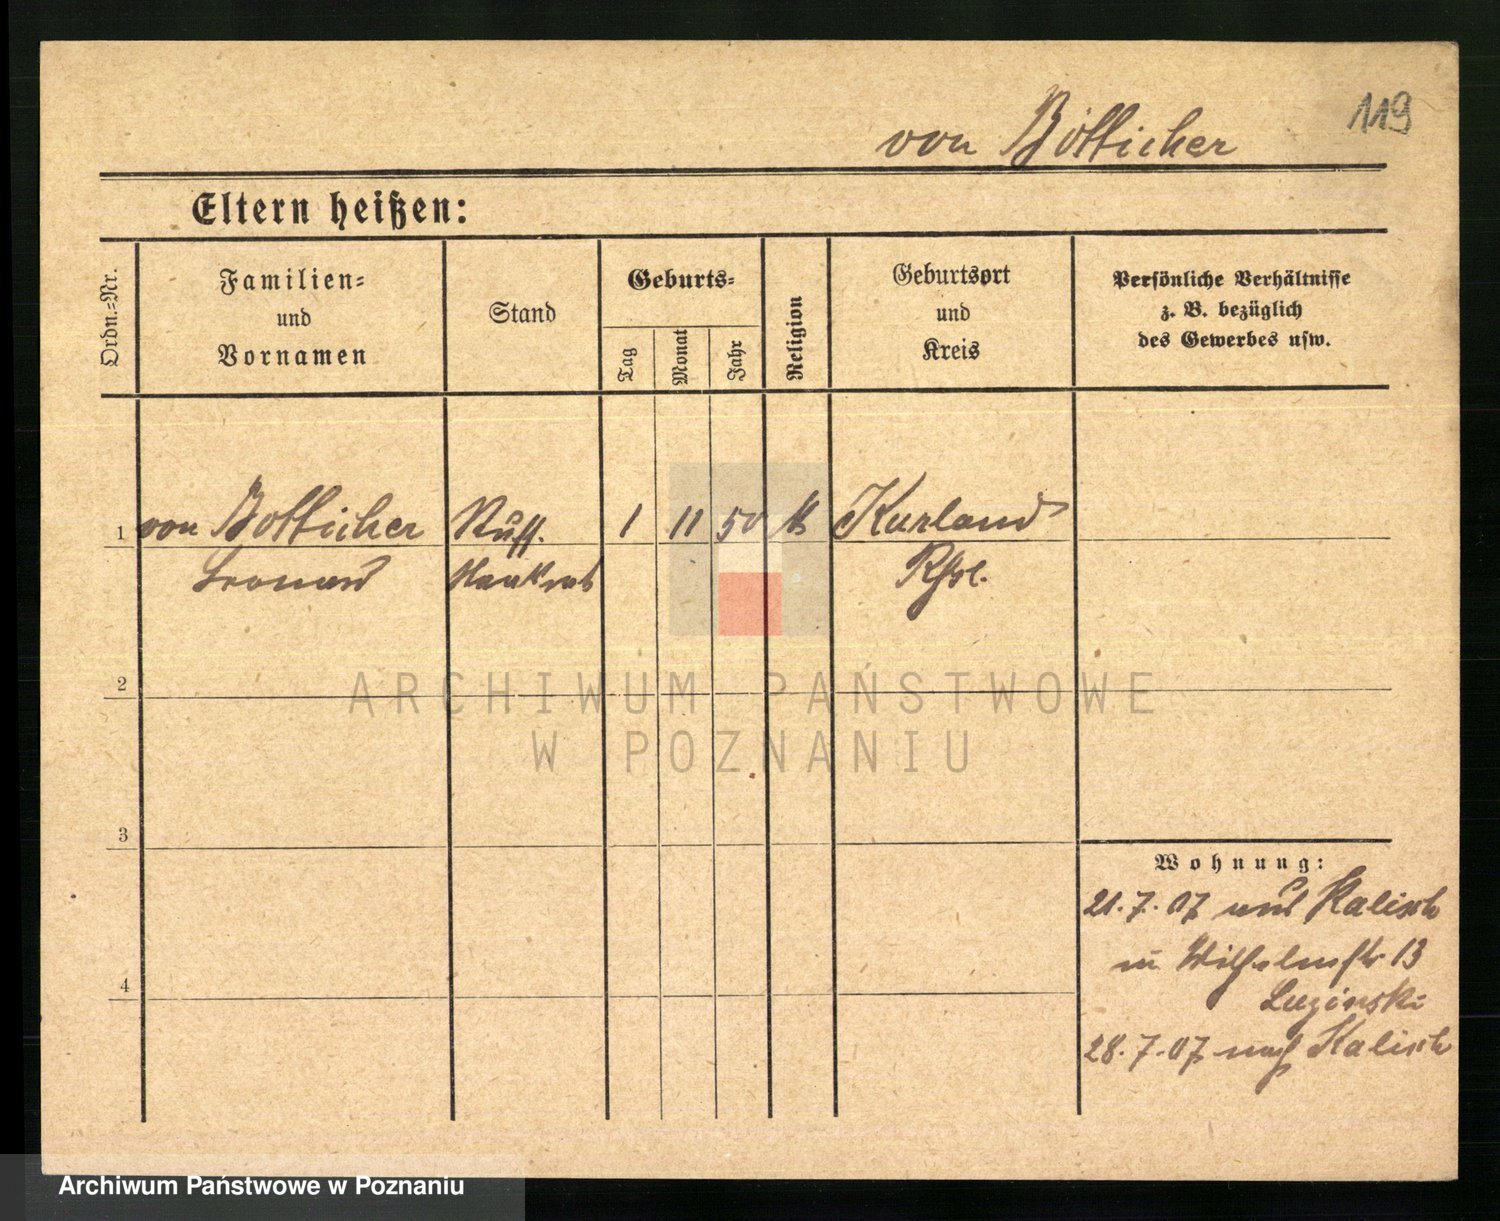 119
von Bötticher
Eltern heißen:
Ordn.=Nr.
Familien=
und
Vornamen
Stand
Geburts=
Tag
Monat
Jahr
Religion
Geburtsort
und
Kreis
Persönliche Verhältnisse
z. B. bezüglich
des Gewerbes usw.
1 von Botticher Russ. 1 11 50 k Kurland
Leonard
2
3
4
Wohnung:
21.7.07 aus Kalisch
in Wilhelmstr 13
Luzinski
28.7.07 nach Kalisch
ARCHIWUM PAŃSTWOWE
W POZNANIU
Archiwum Państwowe w Poznaniu